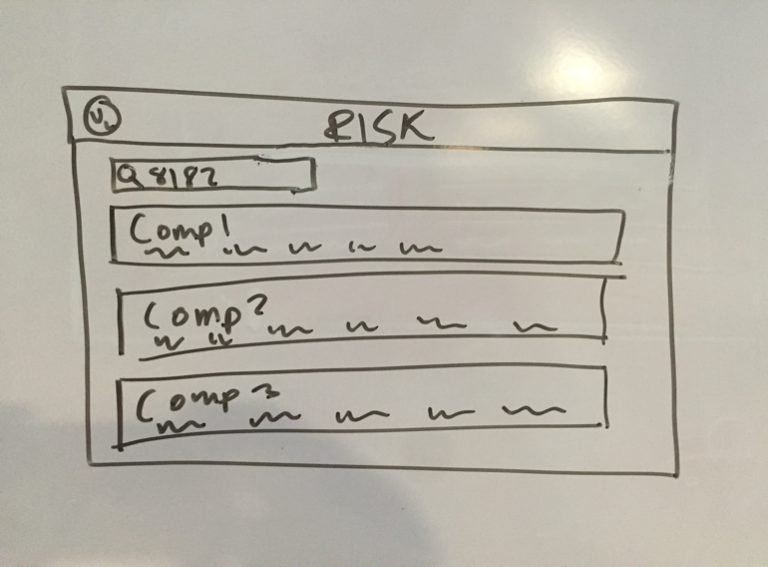 RISK
Q 8182
Comp 1
Comp 2
Comp 3